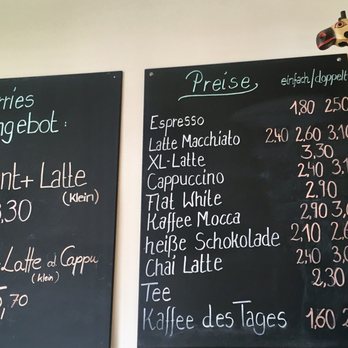 rries
ngebot:
nt + Latte
(Klein)
3,30
-Latte od Cappu
(klein)
,70
Preise einfach/doppelt
Espresso 1,80 2,50
Latte Macchiato 2,40 2,60 3,10
XL-Latte 3,30
Cappuccino 2,40 3,1
Flat White 2,90
Kaffee Mocca 2,90 3,6
heiße Schokolade 2,10 2,6
Chai Latte 2,40 3,0
Tee 2,30
Kaffee des Tages 1,60 2